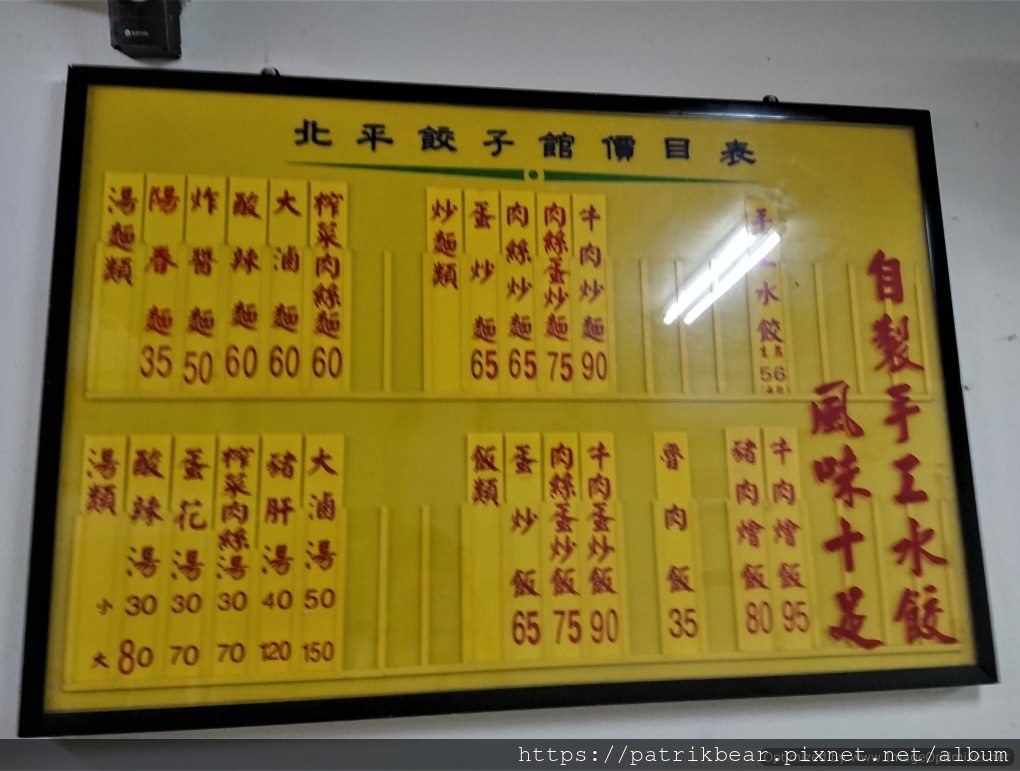 北平餃子館價目表
湯麵類
陽春麵 35
炸醬麵 50
酸辣麵 60
大滷麵 60
榨菜肉絲麵 60
炒麵類
蛋炒麵 65
肉絲炒麵 65
肉絲蛋炒麵 75
牛肉炒麵 90
手工水餃
56
自製手工水餃
風味十足
湯類
小 大
酸辣湯 30 80
蛋花湯 30 70
榨菜肉絲湯 30 70
豬肝湯 40 120
大滷湯 50 150
飯類
蛋炒飯 65
肉絲蛋炒飯 75
牛肉蛋炒飯 90
魯肉飯 35
豬肉燴飯 80
牛肉燴飯 95
https://patrikbear.pixnet.net/album